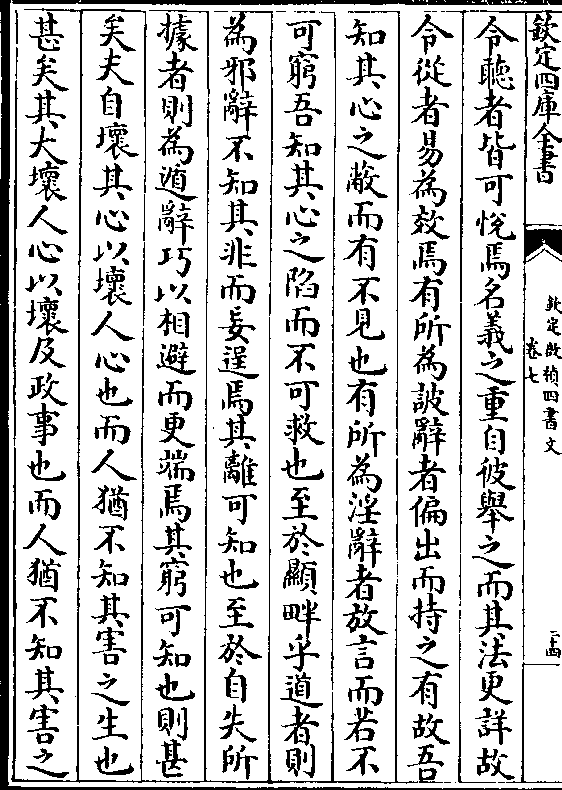 欽定四庫全書
欽定啟禎四書文
卷七
二十四
令聽者皆可悅焉名義之重自彼舉之而其法更詳故
令從者易為效焉有所為詖辭者偏出而持之有故吾
知其心之蔽而有不見也有所為淫辭者放言而若不
可窮吾知其心之陷而不可救也至於顯畔乎道者則
為邪辭不知其非而妄逞焉其離可知也至於自失所
據者則為遁辭巧以相避而更端焉其窮可知也則甚
矣夫自壞其心以壞人心也而人猶不知其害之生也
甚矣其大壞人心以壞及政事也而人猶不知其害之